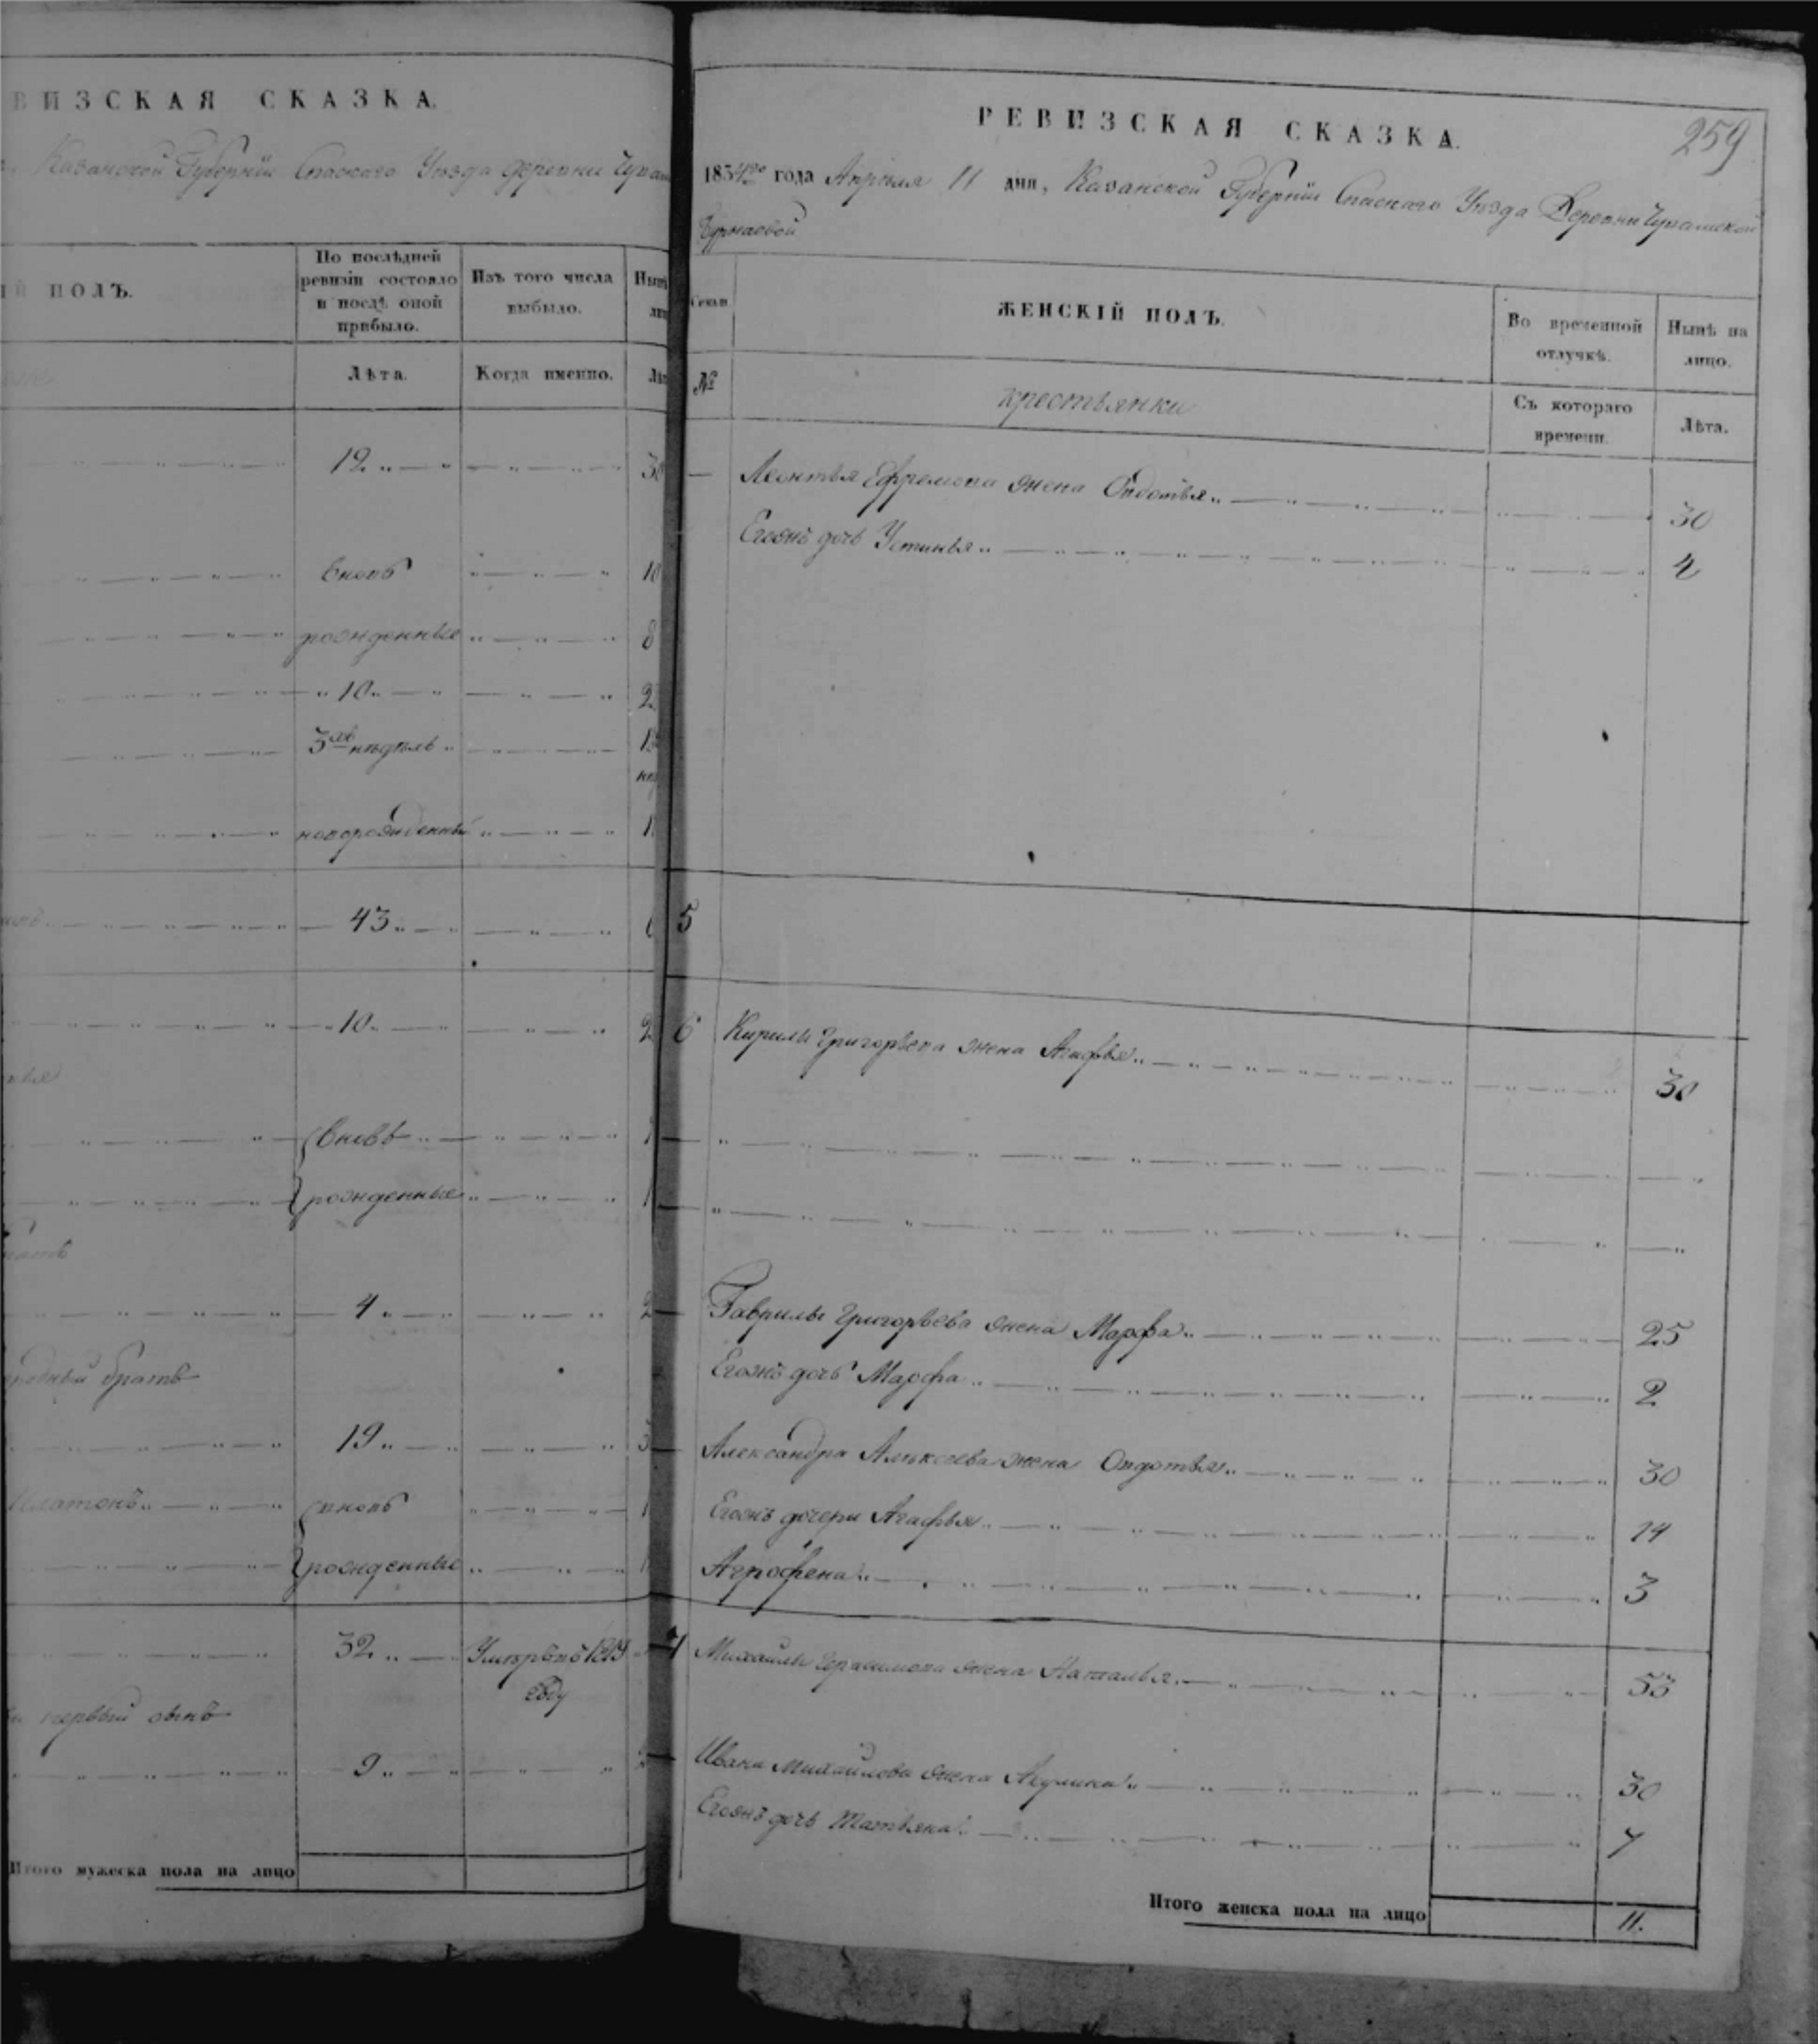 ВИЗСКАЯ СКАЗКА.
Казанской Губерніи Спаскаго Уѣзда деревни
ПОЛЪ.
По послѣдней ревизіи состояло и послѣ оной прибыло.
Изъ того числа выбыло.
Лѣта.
Когда именно.
12
вновь
рожденные
10
3хъ недѣль
новорожденный
43
10
вновь
рожденные
4
родный братъ
19
Платонъ вновь
рожденные
32 Умеръ въ
году
первый сынъ
9
Итого мужеска пола на лицо
259
РЕВИЗСКАЯ СКАЗКА.
1854го года Апрѣля 11 дня, Казанской Губерніи Спаскаго Уѣзда Деревни Чувашской
Бурнаевой
Семьи
ЖЕНСКІЙ ПОЛЪ.
Во временной отлучкѣ.
Нынѣ на лицо.
№
крестьянки
Съ котораго времени.
Лѣта.
Леонтья Ефремова жена Овдотья 30
Егоже дочь Устинья 4
5
6 Кирилы Григорьева жена Агафья 30
Гаврилы Григорьева жена Марфа 25
Егожъ дочь Марфа 2
Александра Алексеева жена Овдотья 30
Егожъ дочери Агафья 14
Агрофена 3
7 Михайлы Герасимова жена Наталья 53
Ивана Михайлова жена Акулина 30
Егожъ дочь Татьяна 7
Итого женска пола на лицо 11.